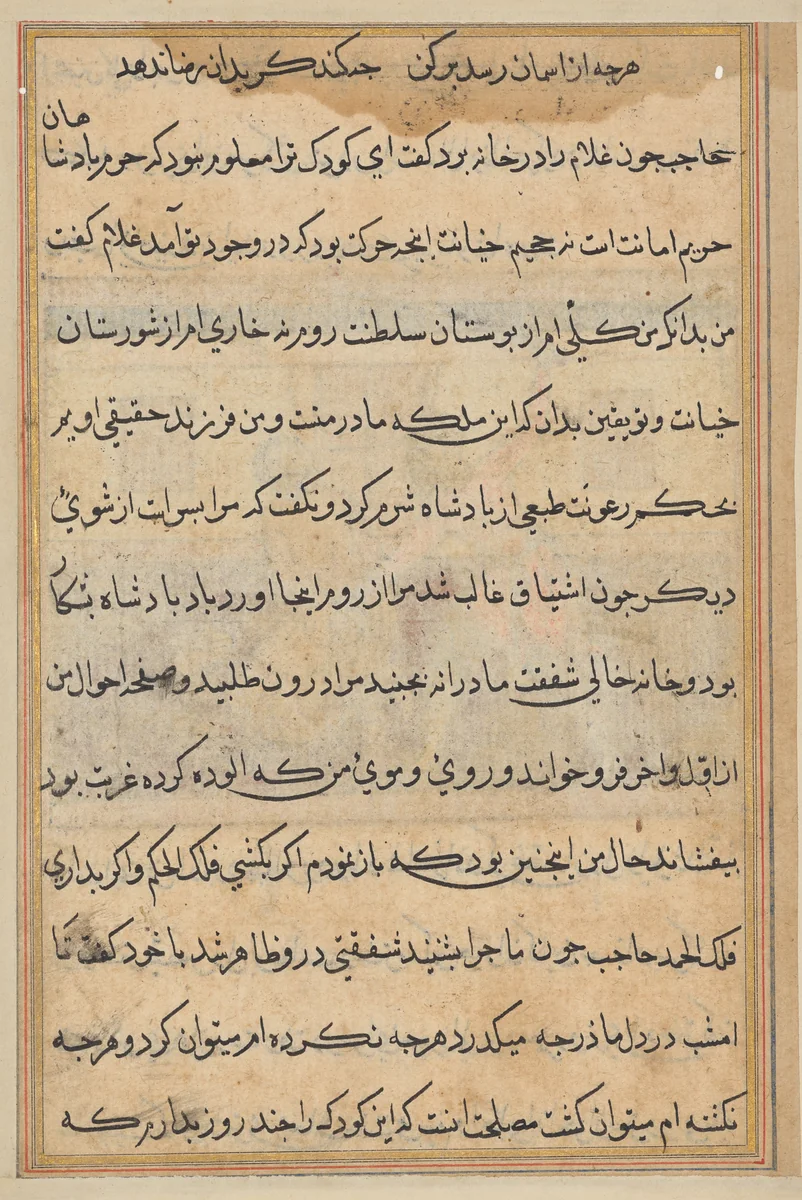 هرجه از اسمان رسد برکن جه کند کر بدان رضا ندهد
هان
حاجب جون غلام را در خانه برد کفت ای کودک ترا معلوم نبود که حرم بادشا
حریم امانت است نه جحیم خیانت اینجه حرکت بود که در وجود تو آمد غلام کفت
من بدانک من کلی ام از بوستان سلطنت روم نه خاری ام از شورستان
خیانت و تو یقین بدان که این ملکه مادر منست و من فرزند حقیقی اویم
بحکم رعونت طبعی از بادشاه شرم کرد و نکفت که مرا بسر است از شوئ
دیکر جون اشتیاق غالب شد مرا از روم اینجا اورد باد بادشاه بشکار
بود و خانه خالی شفقت مادرانه بجنبید مرا درون طلبید و صفحه احوال من
از اوّل و اخر فرو خواند و روئ و موئ من که الوده کرده غربت بود
بیفشاند حال من اینجنین بود که باز نمودم اکر بکشی فلک الحکم و اکر بداری
فلک الحمد حاجب جون ماجرا بشنید شفقتی در و ظاهر شد با خود کفت تا
امشب در دل ما ذرجه میکدرد هرجه نکرده ام میتوان کرد و هرجه
نکشته ام میتوان کشت مصلحت انست که این کودک را جند روز بدارم که